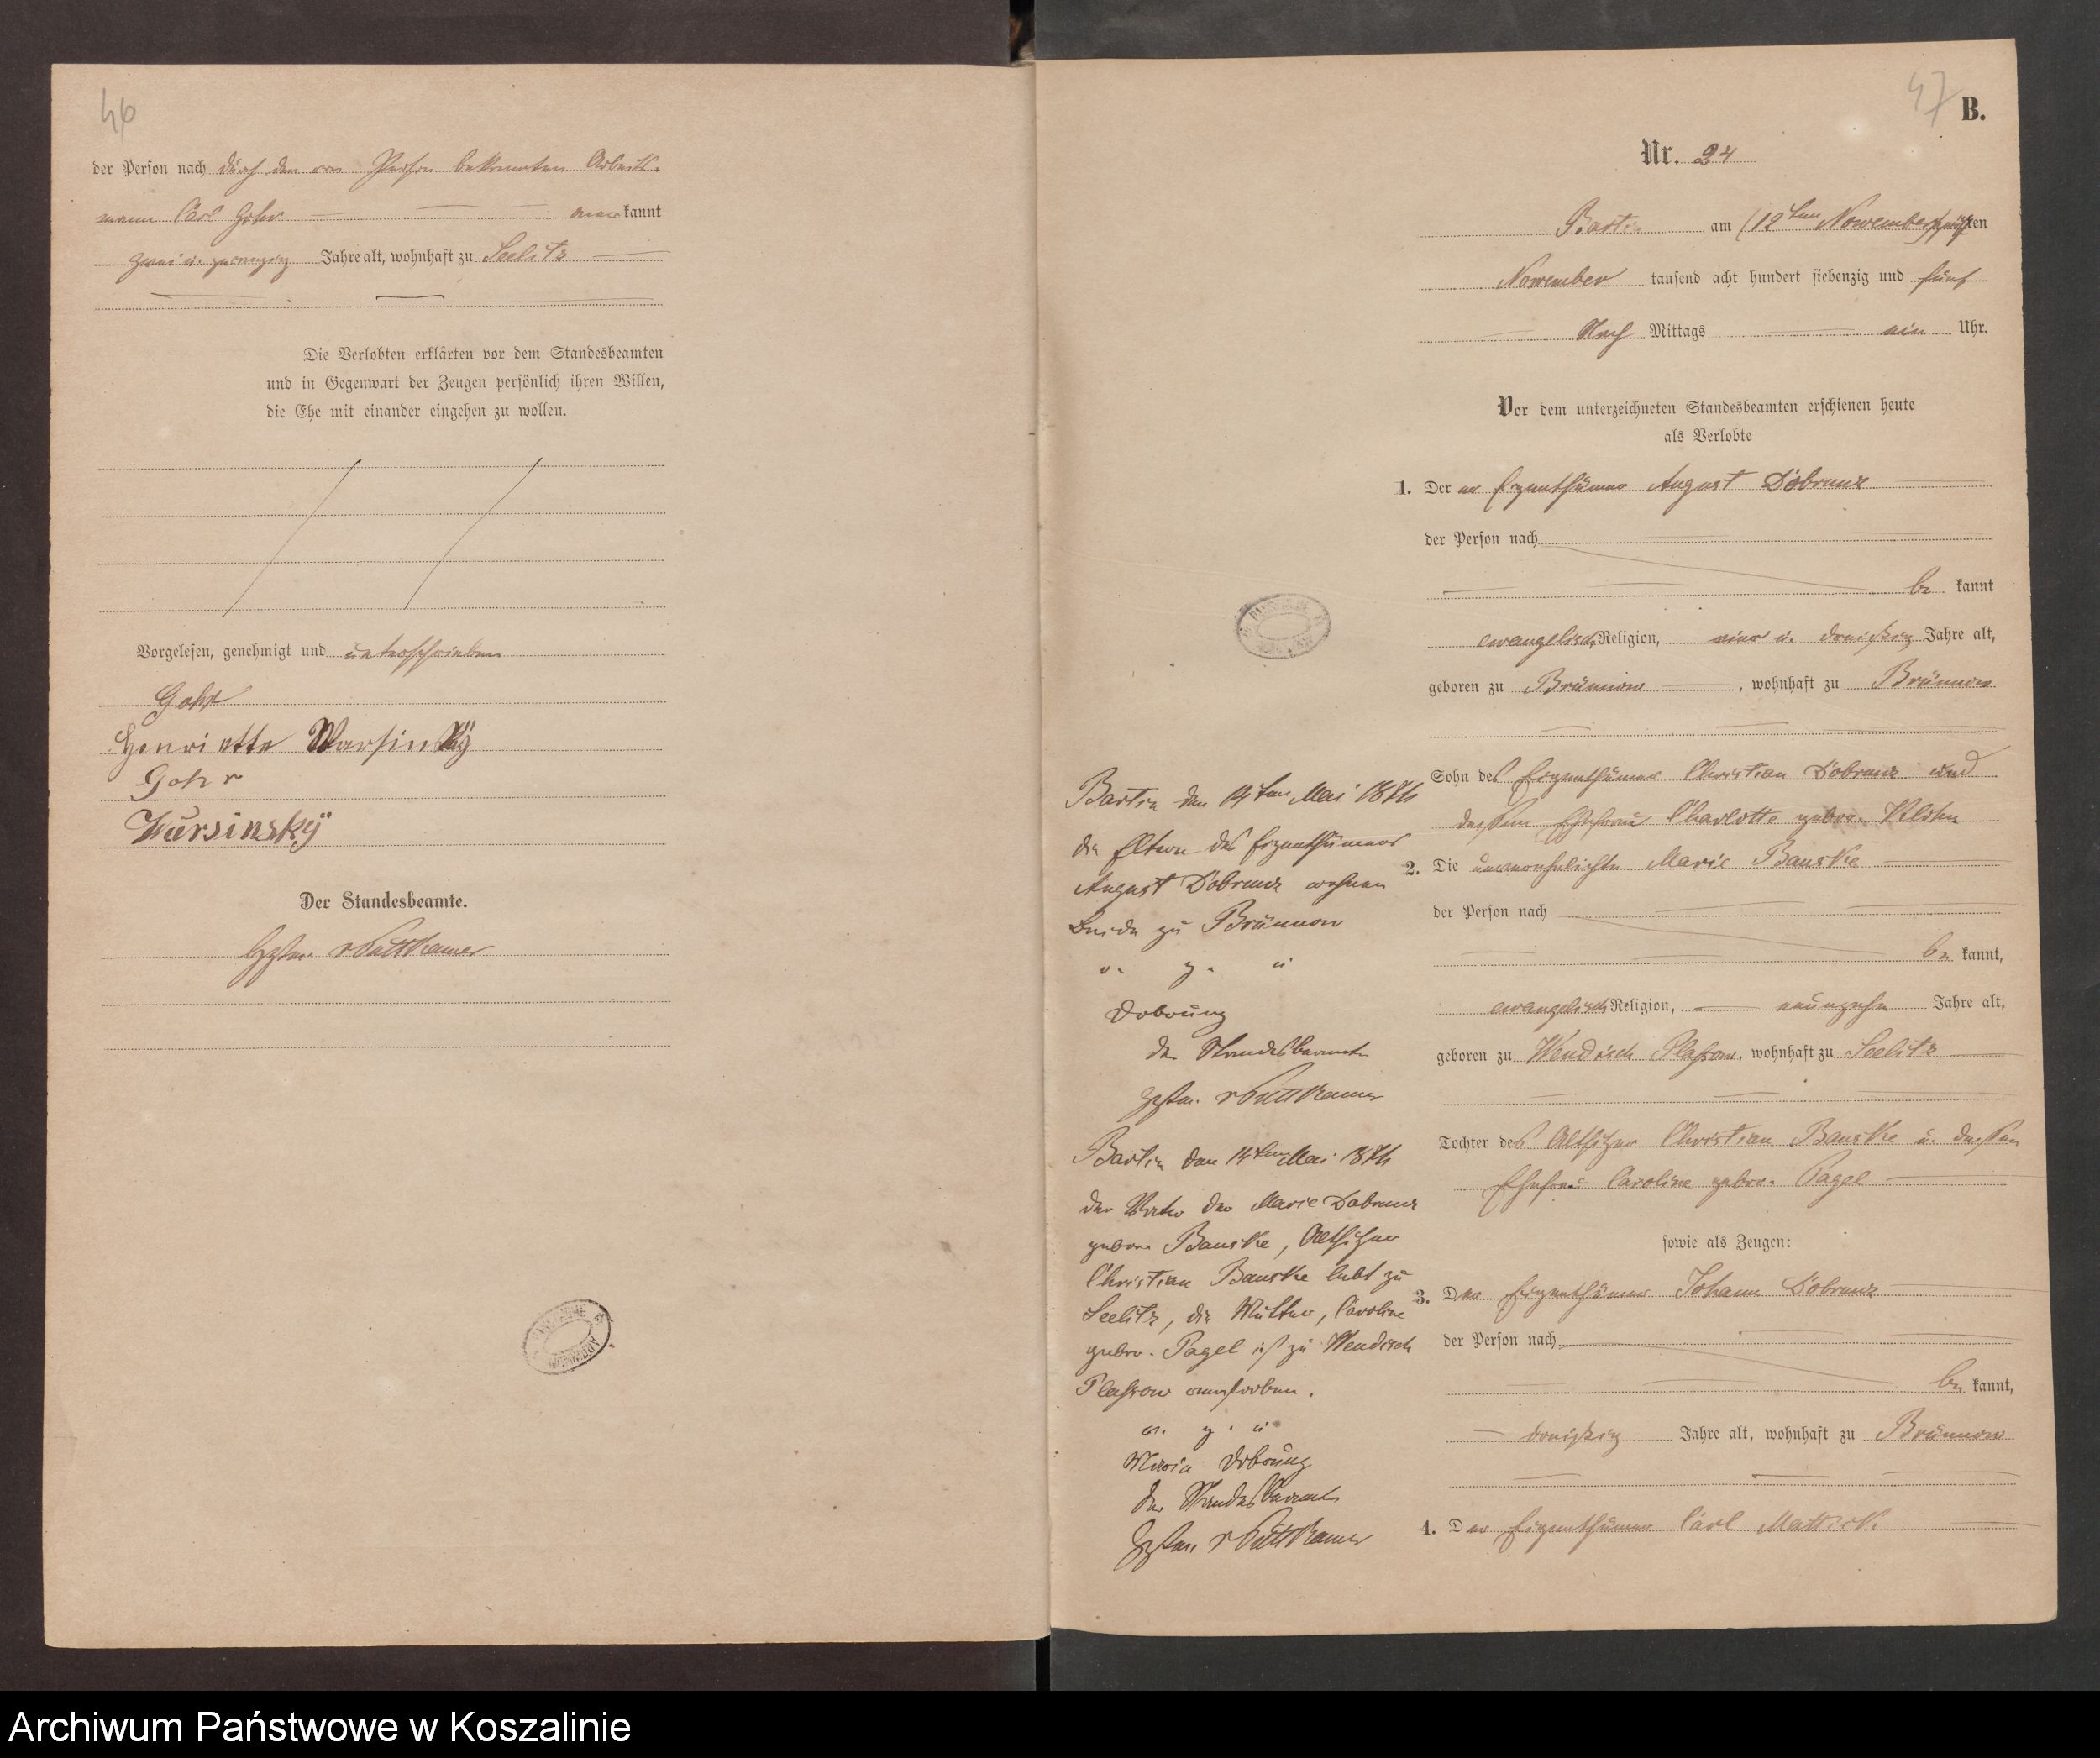 46
der Person nach durch den von Person bekannten Arbeits-
mann Carl Gohr kannt
zwei u. zwanzig Jahre alt, wohnhaft zu Seelitz
Die Verlobten erklärten vor dem Standesbeamten
und in Gegenwart der Zeugen persönlich ihren Willen,
die Ehe mit einander eingehen zu wollen.
Vorgelesen, genehmigt und unterschrieben
Gohr
Henriette Warsinsky
Gohr
Der Standesbeamte.
vPuttkamer
47 B.
Nr. 24
Bartin am (12ten November) zwölften
November tausend acht hundert siebenzig und fünf
Nach Mittags ein Uhr.
Vor dem unterzeichneten Standesbeamten erschienen heute
als Verlobte
1. Der Eigenthümer August Dobrunz
der Person nach
be kannt
evangelisch Religion, einu. dreißig Jahre alt,
geboren zu Brünnow, wohnhaft zu Brünnow
Sohn des Eigenthümer Christian Dobrunz und
dessen Ehefrau Charlotte gebor.
2. Die unverehelichte Marie Banske
der Person nach
be kannt,
evangelisch Religion, neunzehn Jahre alt,
geboren zu Wendisch Plassow, wohnhaft zu Seelitz
Tochter des Altsitzer Christian Banske u. dessen
Ehefrau Caroline gebor. Pagel
sowie als Zeugen:
3. Der Eigenthümer Johann Dobrunz
der Person nach
be kannt,
dreißig Jahre alt, wohnhaft zu Brünnow
4. Der Eigenthümer Carl Mattick
Bartin den 14ten Mai 1876
die Eltern des Eigenthümers
August Dobrunz wohnen
Beide zu Brünnow
v. g. u
Dobrunz
der Standesbeamte
vPuttkamer
Bartin den 14ten Mai 1876
der Vater der Marie Dobrunz
gebor. Banske, Altsitzer
Christian Banske lebt zu
Seelitz, die Mutter, Caroline
gebor. Pagel ist zu Wendisch
Plassow verstorben.
v. g. u
Marie Dobrunz
der Standesbeamte
vPuttkamer
Archiwum Państwowe w Koszalinie